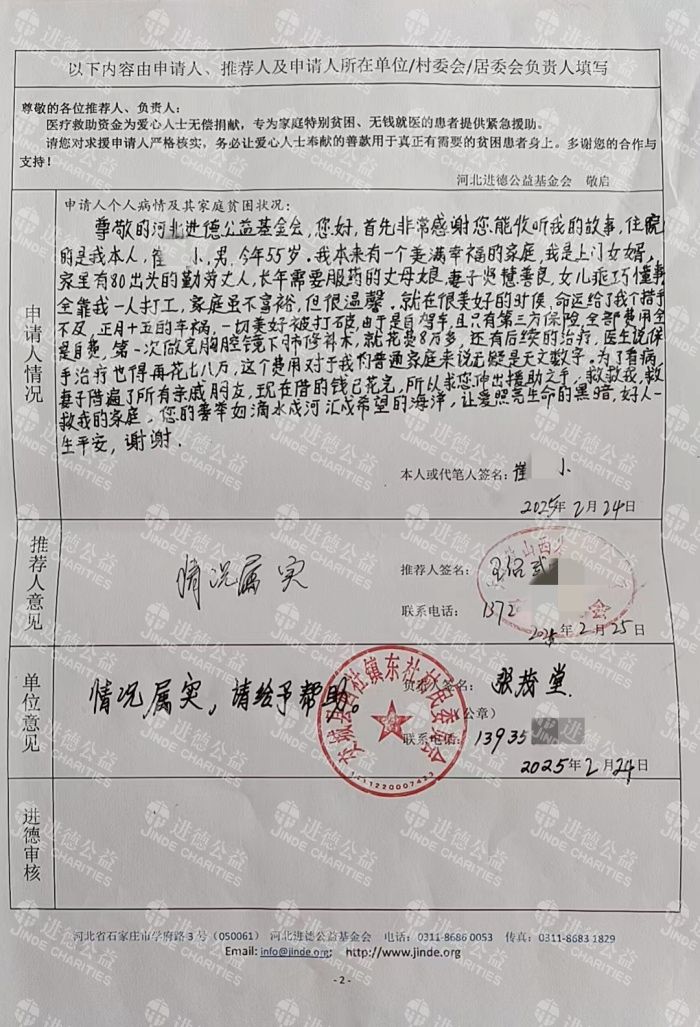 以下内容由申请人、推荐人及申请人所在单位/村委会/居委会负责人填写
尊敬的各位推荐人、负责人：
医疗救助资金为爱心人士无偿捐献，专为家庭特别贫困、无钱就医的患者提供紧急援助。
请您对求援申请人严格核实，务必让爱心人士奉献的善款用于真正有需要的贫困患者身上。多谢您的合作与
支持！
河北进德公益基金会 敬启
申请人情况
申请人个人病情及其家庭贫困状况：
尊敬的河北进德公益基金会，您好，首先非常感谢您能收听我的故事，住院
的是我本人，崔 小，男，今年55岁。我本来有一个美满幸福的家庭，我是上门女婿，
家里有80出头的勤劳丈人，长年需要服药的丈母娘，妻子贤慧善良，女儿乖巧懂事
全靠我一人打工，家庭虽不富裕，但很温馨。就在很美好的时候，命运给了我个措手
不及，正月十五的车祸，一切美好被打破，由于是自驾车，且只有第三方保险，全部费用全
是自费，第一次做完胸腔镜下肺修补术，就花费8万多，还有后续的治疗，医生说保
手治疗也得再花七八万，这个费用对于我们普通家庭来说无疑是天文数字。为了看病，
妻子借遍了所有亲戚朋友，现在借的钱已花完，所以求您伸出援助之手，救救我，救
救我的家庭，您的善举如滴水成河汇成希望的海洋，让爱照亮生命的黑暗，好人一
生平安，谢谢．
本人或代笔人签名：崔 小
2025年2月24日
推荐人意见
情况属实
推荐人签名：
山西
会
联系电话：1372
2025年2月25日
单位意见
情况属实，请给予帮助。
负责人签名：张茂堂
（公章）
社镇东社村民委员会
联系电话：13935
2025年2月24日
进德审核
河北省石家庄市学府路3号（050061） 河北进德公益基金会 电话：0311-8686 0053 传真：0311-8683 1829
Email: info@jinde.org; http://www.jinde.org
- 2 -
进德公益
JINDE CHARITIES